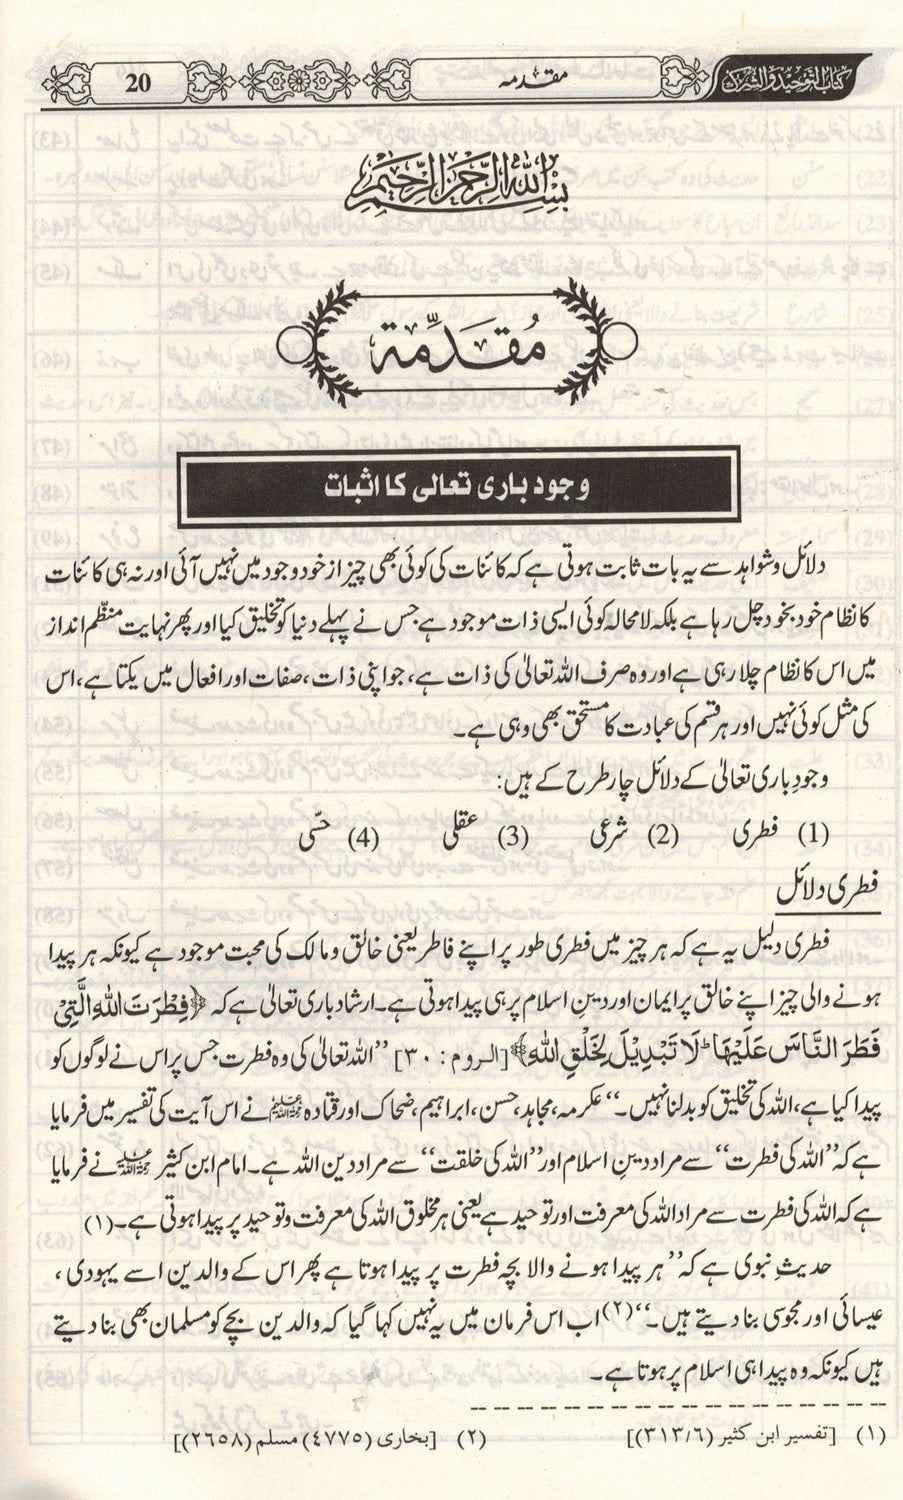 کتاب التوحید والشرک
مقدمہ
20
بِسْمِ اللهِ الرَّحْمٰنِ الرَّحِيْمِ
مُقَدِّمَة
وجود باری تعالی کا اثبات
دلائل و شواہد سے یہ بات ثابت ہوتی ہے کہ کائنات کی کوئی بھی چیز از خود وجود میں نہیں آئی اور نہ ہی کائنات
کا نظام خود بخود چل رہا ہے بلکہ لامحالہ کوئی ایسی ذات موجود ہے جس نے پہلے دنیا کو تخلیق کیا اور پھر نہایت منظّم انداز
میں اس کا نظام چلا رہی ہے اور وہ صرف اللہ تعالیٰ کی ذات ہے، جو اپنی ذات، صفات اور افعال میں یکتا ہے، اس
کی مثل کوئی نہیں اور ہر قسم کی عبادت کا مستحق بھی وہی ہے۔
وجودِ باری تعالیٰ کے دلائل چار طرح کے ہیں:
(1) فطری (2) شرعی (3) عقلی (4) حسّی
فطری دلائل
فطری دلیل یہ ہے کہ ہر چیز میں فطری طور پر اپنے فاطر یعنی خالق و مالک کی محبت موجود ہے کیونکہ ہر پیدا
ہونے والی چیز اپنے خالق پر ایمان اور دینِ اسلام پر ہی پیدا ہوتی ہے۔ ارشاد باری تعالیٰ ہے کہ ﴿فِطْرَتَ اللهِ الَّتِیْ
فَطَرَ النَّاسَ عَلَیْهَا ؕ لَا تَبْدِیْلَ لِخَلْقِ اللهِ﴾ [الروم: ٣٠] ”اللہ تعالیٰ کی وہ فطرت جس پر اس نے لوگوں کو
پیدا کیا ہے، اللہ کی تخلیق کو بدلنا نہیں۔“ عکرمہ، مجاہد، حسن، ابراہیم، ضحاک اور قتادہ نے اس آیت کی تفسیر میں فرمایا
ہے کہ ”اللہ کی فطرت“ سے مراد دینِ اسلام اور ”اللہ کی خلقت“ سے مراد دین اللہ ہے۔ امام ابن کثیر نے فرمایا
ہے کہ اللہ کی فطرت سے مراد اللہ کی معرفت اور توحید ہے یعنی ہر مخلوق اللہ کی معرفت و توحید پر پیدا ہوتی ہے۔(١)
حدیثِ نبوی ہے کہ ”ہر پیدا ہونے والا بچہ فطرت پر پیدا ہوتا ہے پھر اس کے والدین اسے یہودی،
عیسائی اور مجوسی بنا دیتے ہیں۔“(٢) اب اس فرمان میں یہ نہیں کہا گیا کہ والدین بچے کو مسلمان بھی بنا دیتے
ہیں کیونکہ وہ پیدا ہی اسلام پر ہوتا ہے۔
(١) [تفسیر ابن کثیر (٣١٣/٦)] (٢) [بخاری (٤٧٧٥) مسلم (٢٦٥٨)]